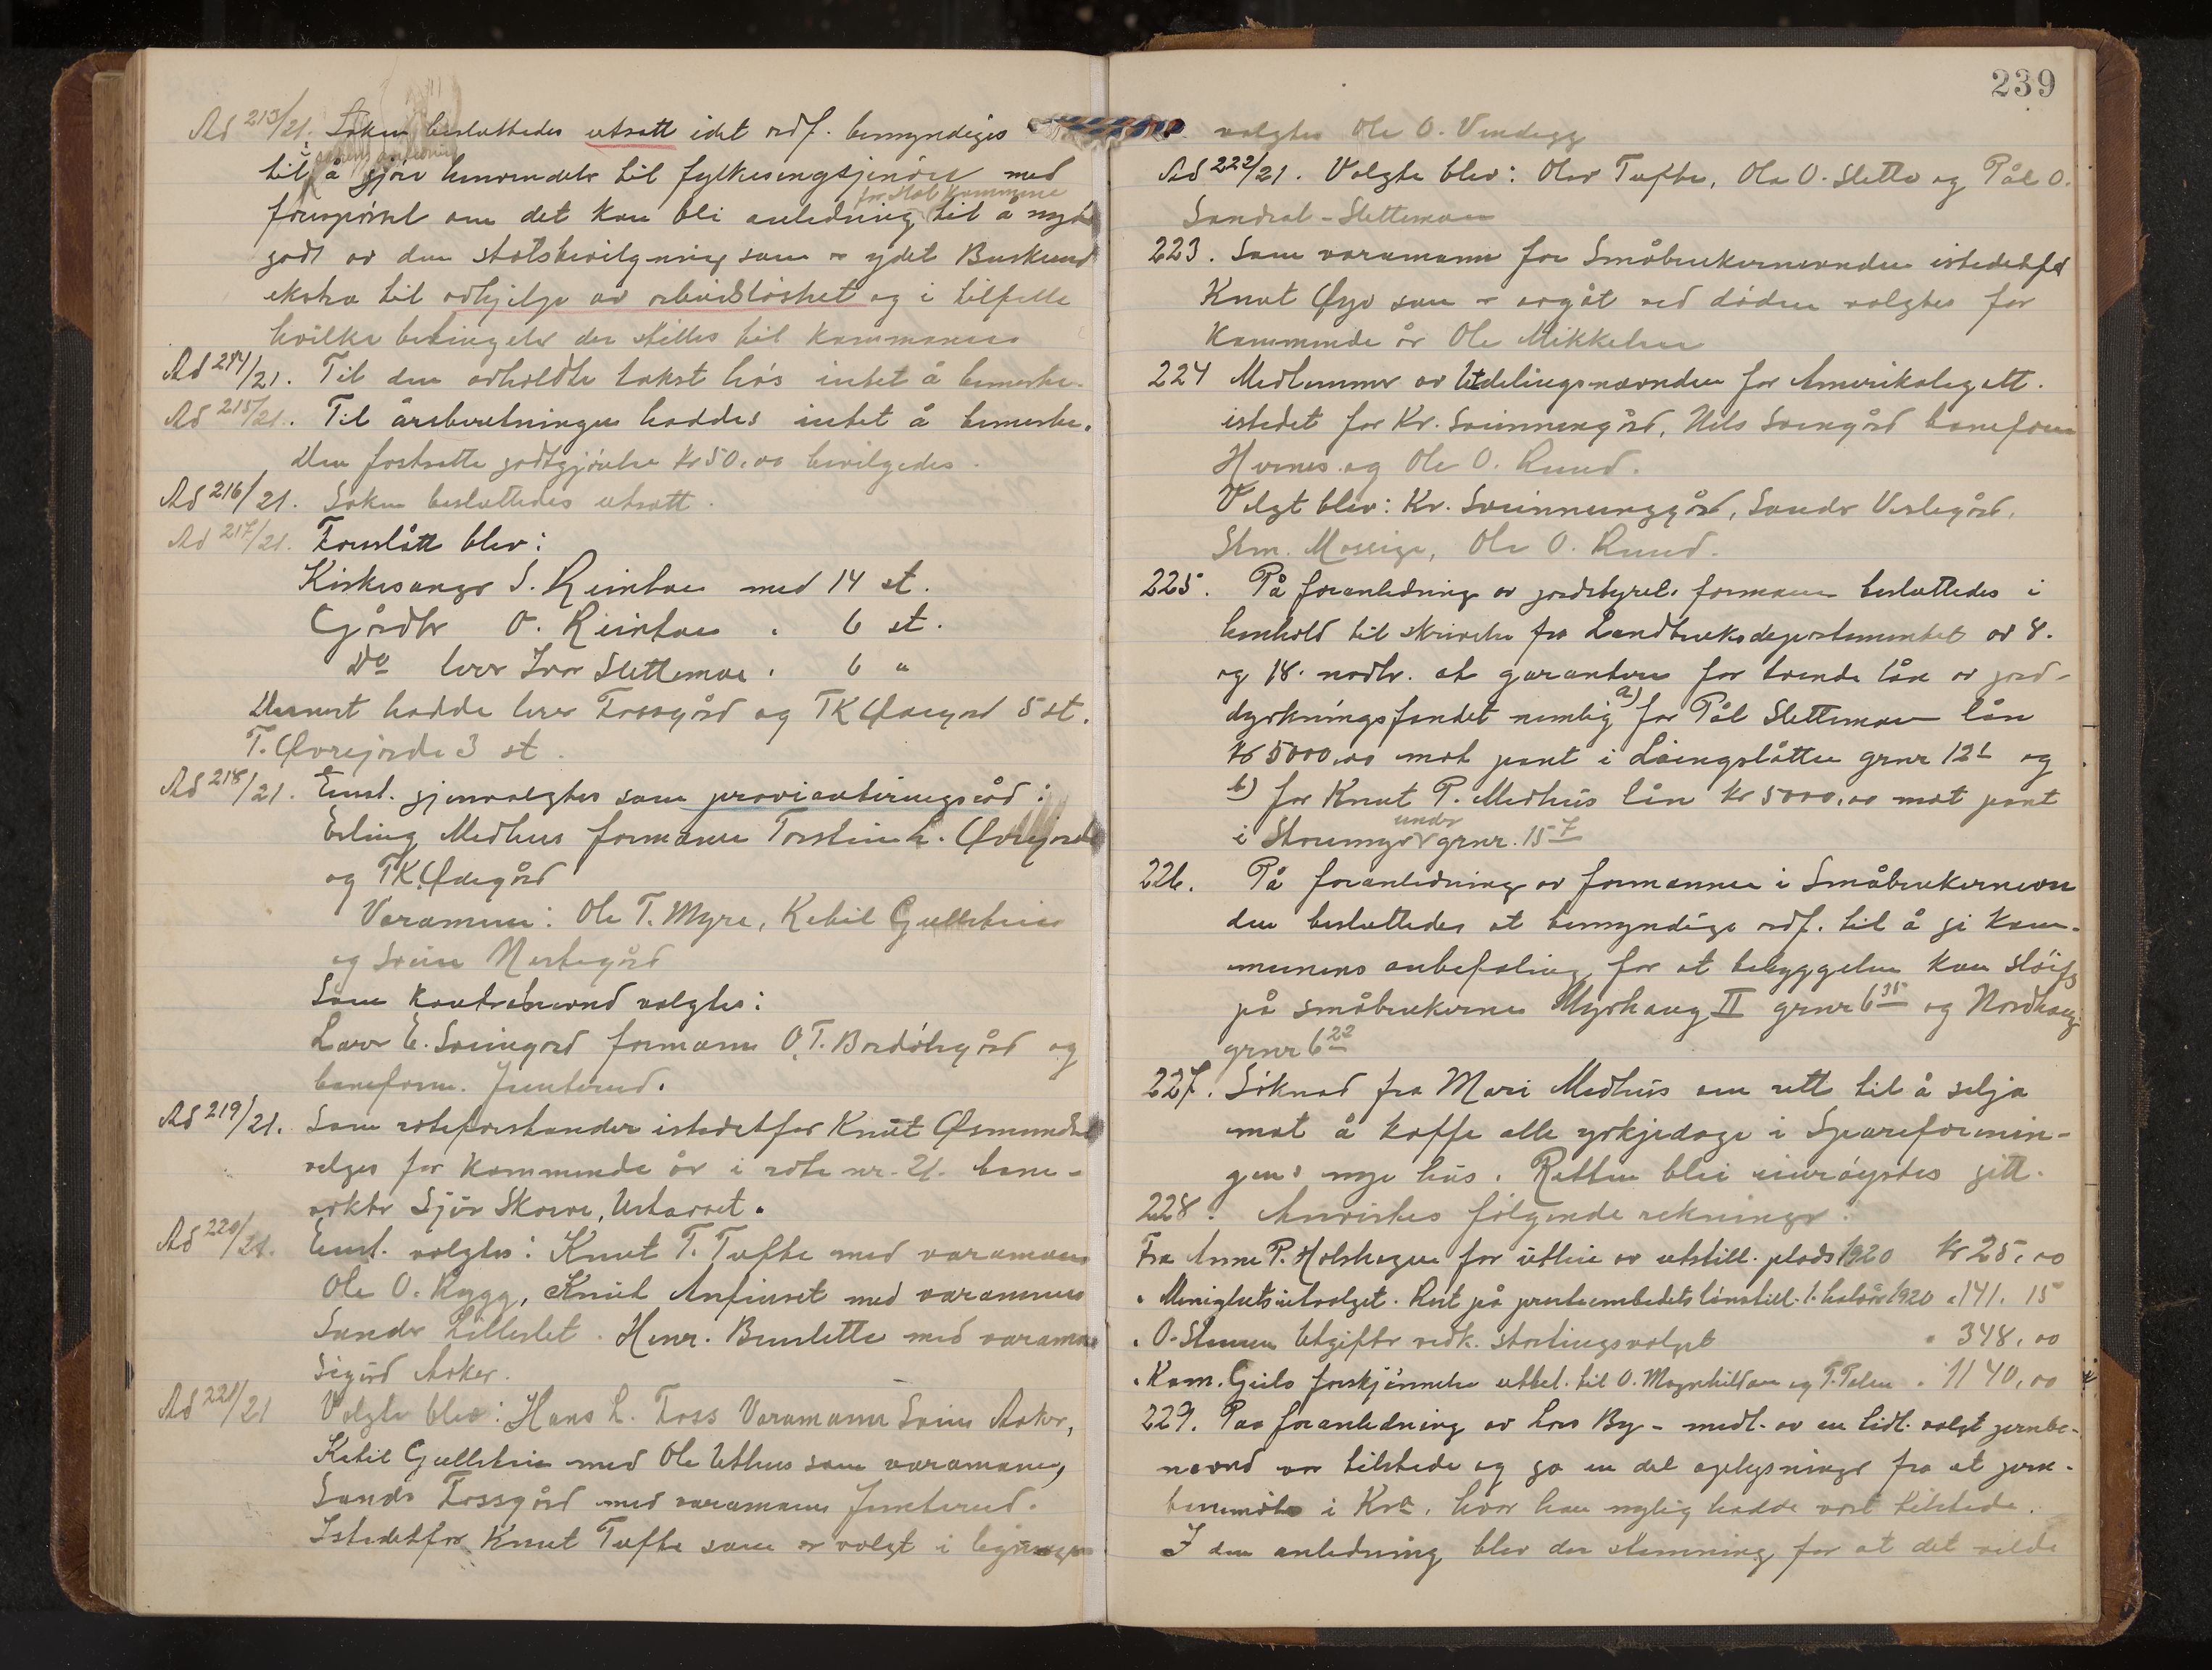 Ad 213/21. Saken besluttedes utsatt idet ordf. bemyndiges
til å gjöre henvendelse til fylkesingeniören med
for Hol Kommune
forespörsel om det kan bli anledning til å nyde
godt av den statsbevilgning som er ydet Buskerud
ekstra til avhjelp av arbeidslöshet og i tilfelle
hvilke betingelser der stilles til kommunen
Ad 214/21. Til den avholdte takst hös intet å bemerke.
Ad 215/21. Til årsberetningen haddes intet å bemerke.
Den fastsatte godtgjörelse kr 50.00 bevilgedes.
Ad 216/21. Saken besluttedes utsatt.
Ad 217/21. Forslått blev:
Kirkesanger S. Reinton med 14 st.
Gårdbr O. Reinton " 6 st.
Do Iver Slettemoe " 6 "
Dernest hadde lerer Fossgård og TK Ödegård 5 st.
T. Övrejorde 3 st.
Ad 218/21. Enst. gjenvalgtes som provianteringsråd:
Erling Medhus formann Torstein L. Övrejorde
og TK Ödegård
Varamenn: Ole T. Myre, Ketil Gullstein
og Svein Nestegård
Som kontrolnevnd valgtes:
Lars E. Sveingard formann O.T. Bordölsgård og
baneform. Junterud.
Ad 219/21. Som roteforstander istedetfor Knut Ösmundset
velges for kommende år i rote nr. 21. bane-
vokter Sjur Skarve, Ustaoset.
Ad 220/21. Enst. valgtes: Knut T. Tufte med varamann
Ole O. Rygg, Knut Anfinset med varamann
Sander Lilleslet. Henr. Burslette med varamann
Sigurd Aaker.
Ad 221/21 Valgte blev: Hans L. Foss Varamann Svein Aaker,
Ketil Gullstein med Ole Uthus som varamann,
Sander Fossgård med varamann Junterud.
Istedetfor Knut Tufte som er valgt i ligningen
239
valgtes Ole O. Vindegg
Ad 222/21. Valgte blev: Olav Tufte, Ola O. Slette og Pål O.
Sundral-Slettemoen
223. Som varamann for Småbrukernevnden istedetfor
Knut Öyo som er avgåt ved döden valgtes for
kommende år Ole Mikkelsen
224 Medlemmer av Utdelingsnevnden for Amerikalegatt.
istedet for Kr. Sveinnunggård, Nils Svengård baneform
Hernes og Ole O. Ruud.
Valgt blev: Kr. Sveinnunggård, Sander Veslegård,
Stm. Mossige, Ole O. Ruud.
225. På foranledning av jordstyrets formann besluttedes i
henhold til skrivelse fra Landbruksdepartementet av 8.
og 18. novbr. at garantere for tvende lån av jord-
dyrkningsfondet nemlig a) for Pål Slettemoen lån
kr 5000.00 mot pant i Låengslåtten grnr 12 1 og
b) for Knut P. Medhus lån kr 5000.00 mot pant
i Storemyr under grnr. 15 7
226. På foranledning av formannen i Småbrukernevn
den besluttedes at bemyndige ordf. til å gi kom-
munens anbefaling for at bebyggelsen kan slöifes
på småbrukerne Myrhaug II grnr 6 35 og Nordhaug
grnr 6 22
227. Söknad fra Mari Medhus om rett til å selja
mat å kaffe alle yrkjedage i Spareforenin-
gens nye hus. Retten blei einröystes gitt.
228. Anvistes fölgende rekninger:
Fra Anne P. Holshagen for utleie av utstill. plads 1920 kr 25.00
" Menighetsutvalget. Rest på presteembedets lönstill. 1. halvår 1920 " 141.15
" O. Stenen Utgifter vedk. stortingsvalget " 348.00
" Kom. Geilo forskjönnelse utbet. til O. Magnhildom og T. Palen " 1140.00
229. Paa foranledning av Lars By - medl. av en tidl. valgt jernba-
nevnd var tilstede og ga en del oplysninger fra et jern-
banemöte i Kra. hvor han nylig hadde vært tilstede.
I den anledning blev der stemning for at det vilde